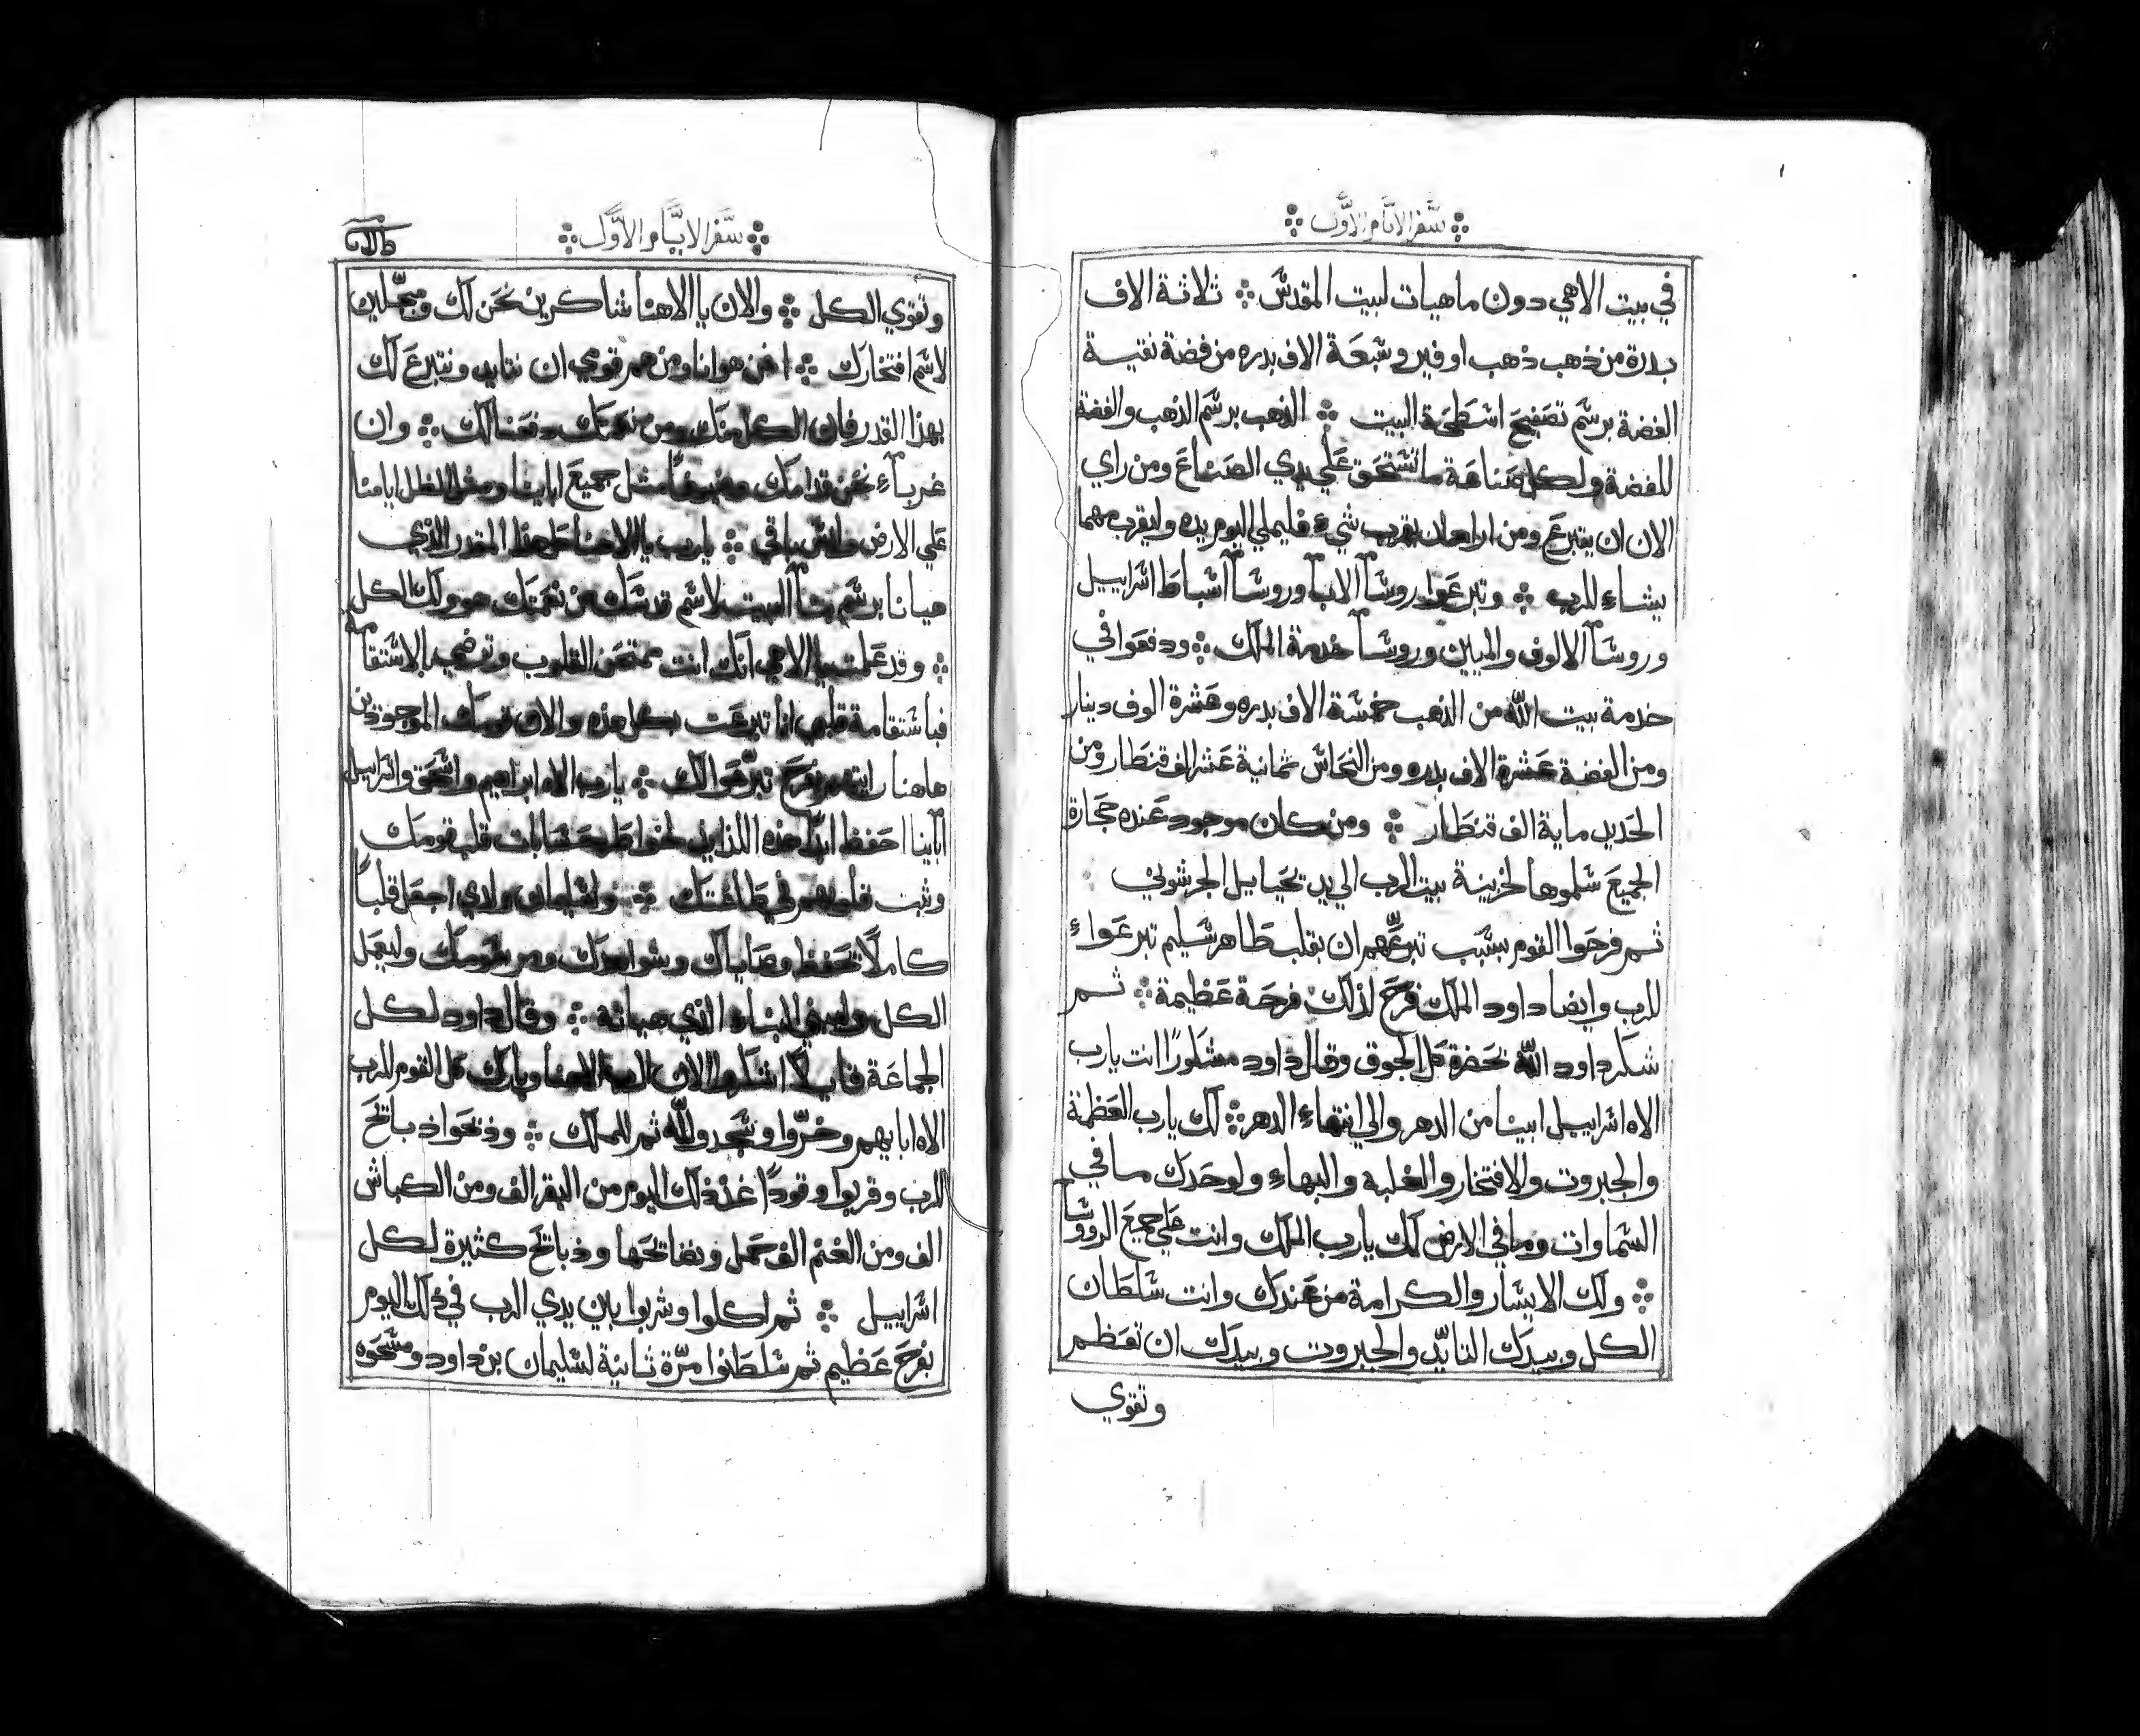 سفر الايام الاول
في بيت الاهي دون ما هيات لبيت المقدس ثلاثة الاف
بدرة من ذهب ذهب اوفير وسبعة الاف بدره من فضة نقية
الفضة برسم تصفيح اسطحة البيت الذهب برسم الذهب والفضة
للفضة ولكل صناعة ما تستحق علي يدي الصناع ومن راي
الان ان يتبرع ومن اراد ان يقرب شيء فليملي اليوم يده وليقرب مهما
يشاء للرب وتبرعوا روسآ الابآ وروسآ اسباط اسراييل
وروسآ الالوف والميين وروسآ خدمة الملك ودفعوا في
خدمة بيت الله من الذهب خمسة الاف بدره وعشرة الوف دينار
ومن الفضة عشرة الاف بدره ومن النحاس ثمانية عشر الف قنطار ومن
الحديد ماية الف قنطار ومن كان موجود عنده حجارة
الجميع سلموها لخزينة بيت الرب الي يد يحيايل الجرشوني
ثم فرحوا القوم بسبب تبرعهم ان بقلب طاهر سليم تبرعواء
للرب وايضا داود الملك فرح لذلك فرحة عظيمة ثم
شكر داود الله بحضرة كل الجوق وقال داود مشكورًا انت يارب
الاه اسراييل ابينا من الدهر والي انتهاء الدهر لك يارب العظمة
والجبروت والافتخار والغلبه والبهاء ولوحدك ما في
السماوات وما في الارض لك يارب الملك وانت علي جميع الروسآ
ولك الايسار والكرامة من عندك وانت سلطان
الكل وبيدك التايّد والجبروت وبيدك ان تعظم
وتقوي
سفر الايام الاول
وتقوي الكل والان يا الاهنا شاكرين نحن لك ومبجّلين
لاسم افتخارك فمن هو انا ومن هم قومي ان نتايد ونتبرع لك
بهذا القدر فان الكل منك ومن نعمتك دفعنا لك وان
غرباء نحن قدامك وضيوفًا مثل جميع ابايينا ومثل الظل ايامنا
علي الارض وليس باقي يارب يا الاهنا كل هذا المقدر الذي
هيانا برسم بنآ البيت لاسم قدسك من نعمتك هو ولك الكل
وقد علمت يا الاهي انك انت ممتحن القلوب وترضي بالاستقامة
فباستقامة قلبي انا تبرعت بكل هذه والان قومك الموجودين
هاهنا رايتهم بفرح تبرّعوا لك يارب الاه ابراهيم واسحق واسراييل
آبآينا احفظ ابدًا هذه خواطر حسابات قلب قومك
وثبت قلوبهم في طاعتك ولسليمان ولدي اجعل قلبًا
كاملًا تحفظ وصاياك وشواهدك ومرسومك وليعمل
الكل وليبني البناء الذي هياته وقال داود لكل
الجماعة قايلًا اشكروا الان الرب الاهنا وبارك كل القوم للرب
الاه ابايهم وخرّوا وسجدو لله ثم للملك وذبحوا ذبايح
للرب وقربوا وقودًا غد ذلك اليوم من البقر الف ومن الكباش
الف ومن الغنم الف حمل ونضايحها وذبايح كثيرة لكل
اسراييل ثم اكلوا وشربوا بين يدي الرب في ذلك اليوم
بفرح عظيم ثم سلطنوا مرّة ثانية لسليمان بن داود ومسحوه